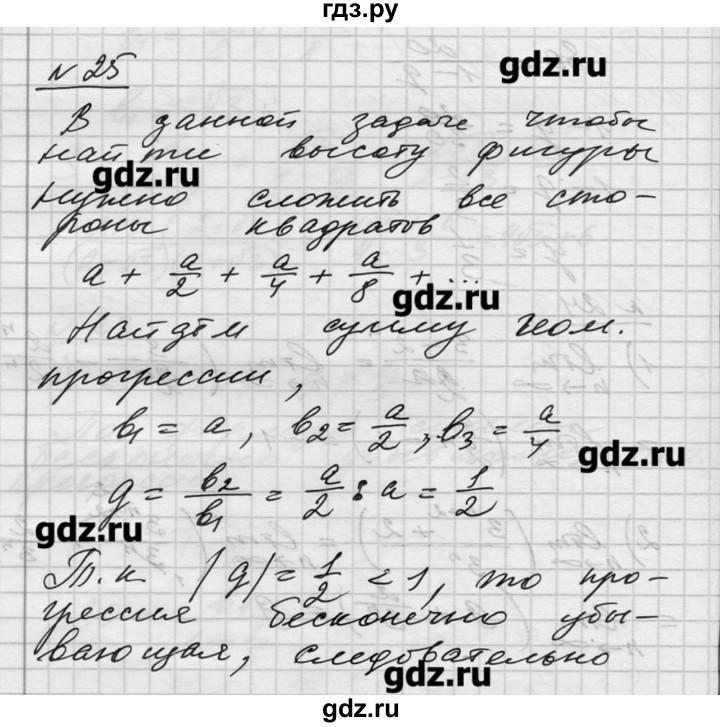 гдз.ру
№ 25
gdz.ru
В данной задаче чтобы
найти высоту фигуры
gdz.ru
нужно сложить все сто-
роны квадратов
a + a/2 + a/4 + a/8 + ...
gdz.ru
Найдём сумму геом.
прогрессии,
b₁ = a, b₂ = a/2, b₃ = a/4
gdz.ru
q = b₂/b₁ = a/2 : a = 1/2
gdz.ru
Т.к |q| = 1/2 < 1, то про-
грессия бесконечно убы-
вающая, следовательно
gdz.ru
gdz.ru